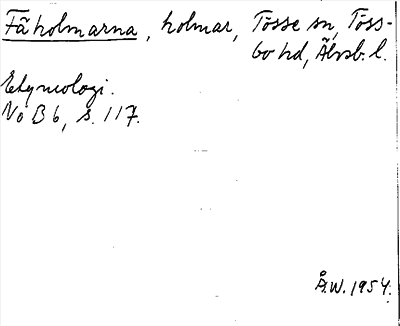 Fåholmarna, holmar, Tösse sn, Töss-
bo hd, Älvsb. l.
Etymologi.
NoB 6, s. 117.
Å.W. 1954.